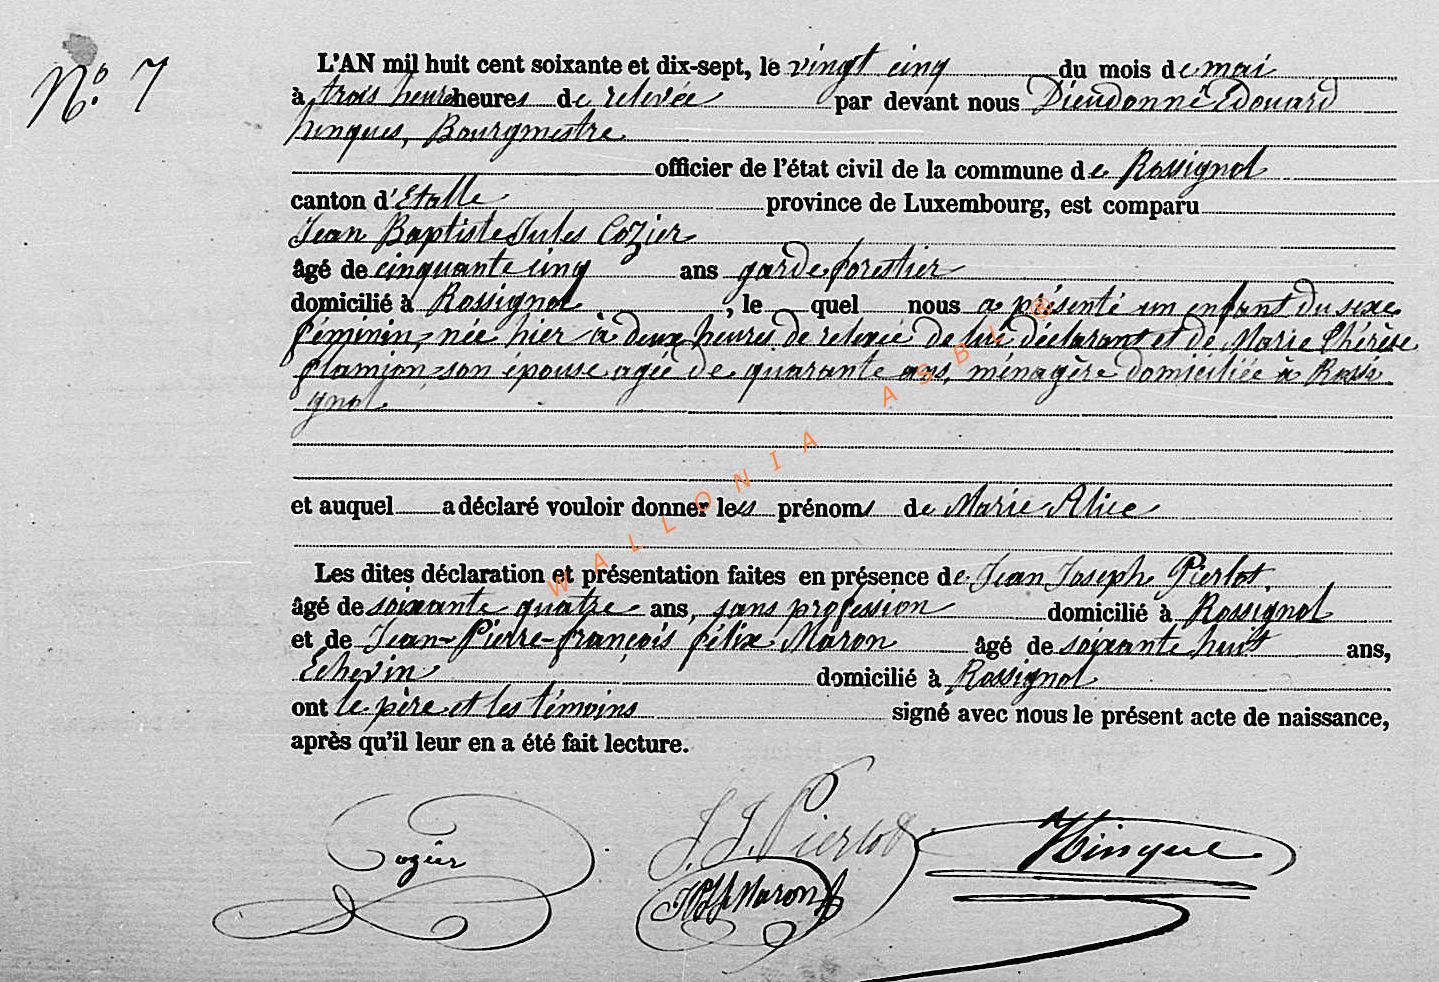 N° 7
L'AN mil huit cent soixante et dix-sept, le vingt cinq du mois de mai
à trois heures heures de relevée par devant nous Dieudonné Edouard
hinques, Bourgmestre
officier de l'état civil de la commune de Rossignol
canton d'Etalle province de Luxembourg, est comparu
Jean Baptiste Jules Cozier
âgé de cinquante cinq ans garde forestier
domicilié à Rossignol, le quel nous a présenté un enfant du sexe
féminin, née hier à deux heures de relevée de lui déclarant et de Marie Thérèse
flamion, son épouse agée de quarante ans, ménagère domiciliée à Rossi
gnol
et auquel a déclaré vouloir donner les prénoms de Marie Alice
Les dites déclaration et présentation faites en présence de Jean Joseph Pierlot,
âgé de soixante quatre ans, sans profession domicilié à Rossignol
et de Jean-Pierre-françois félix Maron âgé de soixante huit ans,
Echevin domicilié à Rossignol
ont le père et les témoins signé avec nous le présent acte de naissance,
après qu'il leur en a été fait lecture.
Cozier J. J. Pierlot Hinque
Maron
WALLONIA ASBL ®